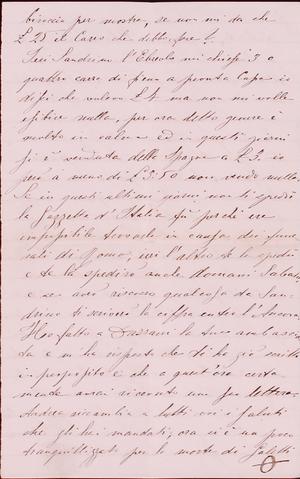 per mostro, se non mi da che
£ 25 il Caro che debbo fare?
Ieri Sandrino l'Ebreo mi chiese 3 o
quattro carra di fieno a pronta Capa io
dissi che voleva £ 4 ma non mi volle
offrire nulla, per ora detto genere è
molto in calma ed in questi giorni
si è venduto delle a £ 3. io
però a meno di £ 3.50 non vendo nulla.
Se in questi ultimi giorni non ti spedii
la Gazzetta d'Italia fu perché era
impossibile trovarla in causa dei fune-
rali di Roma, ieri l'altro te la spedii
e te la spedirò anche domani Sabato
e se avrò riscosso qualcosa da San-
drino ti scriverò la cifra entro l'
Ho fatto a la tua ambascia-
ta e m'ha risposto che ti ha già scritto
in proposito e che a quest'ora certa-
mente avrai ricevuto una sua lettera.
Andrea ricambia a tutti voi i saluti
che gli hai mandati, ora si è un poco
tranquillizzato per la morte di